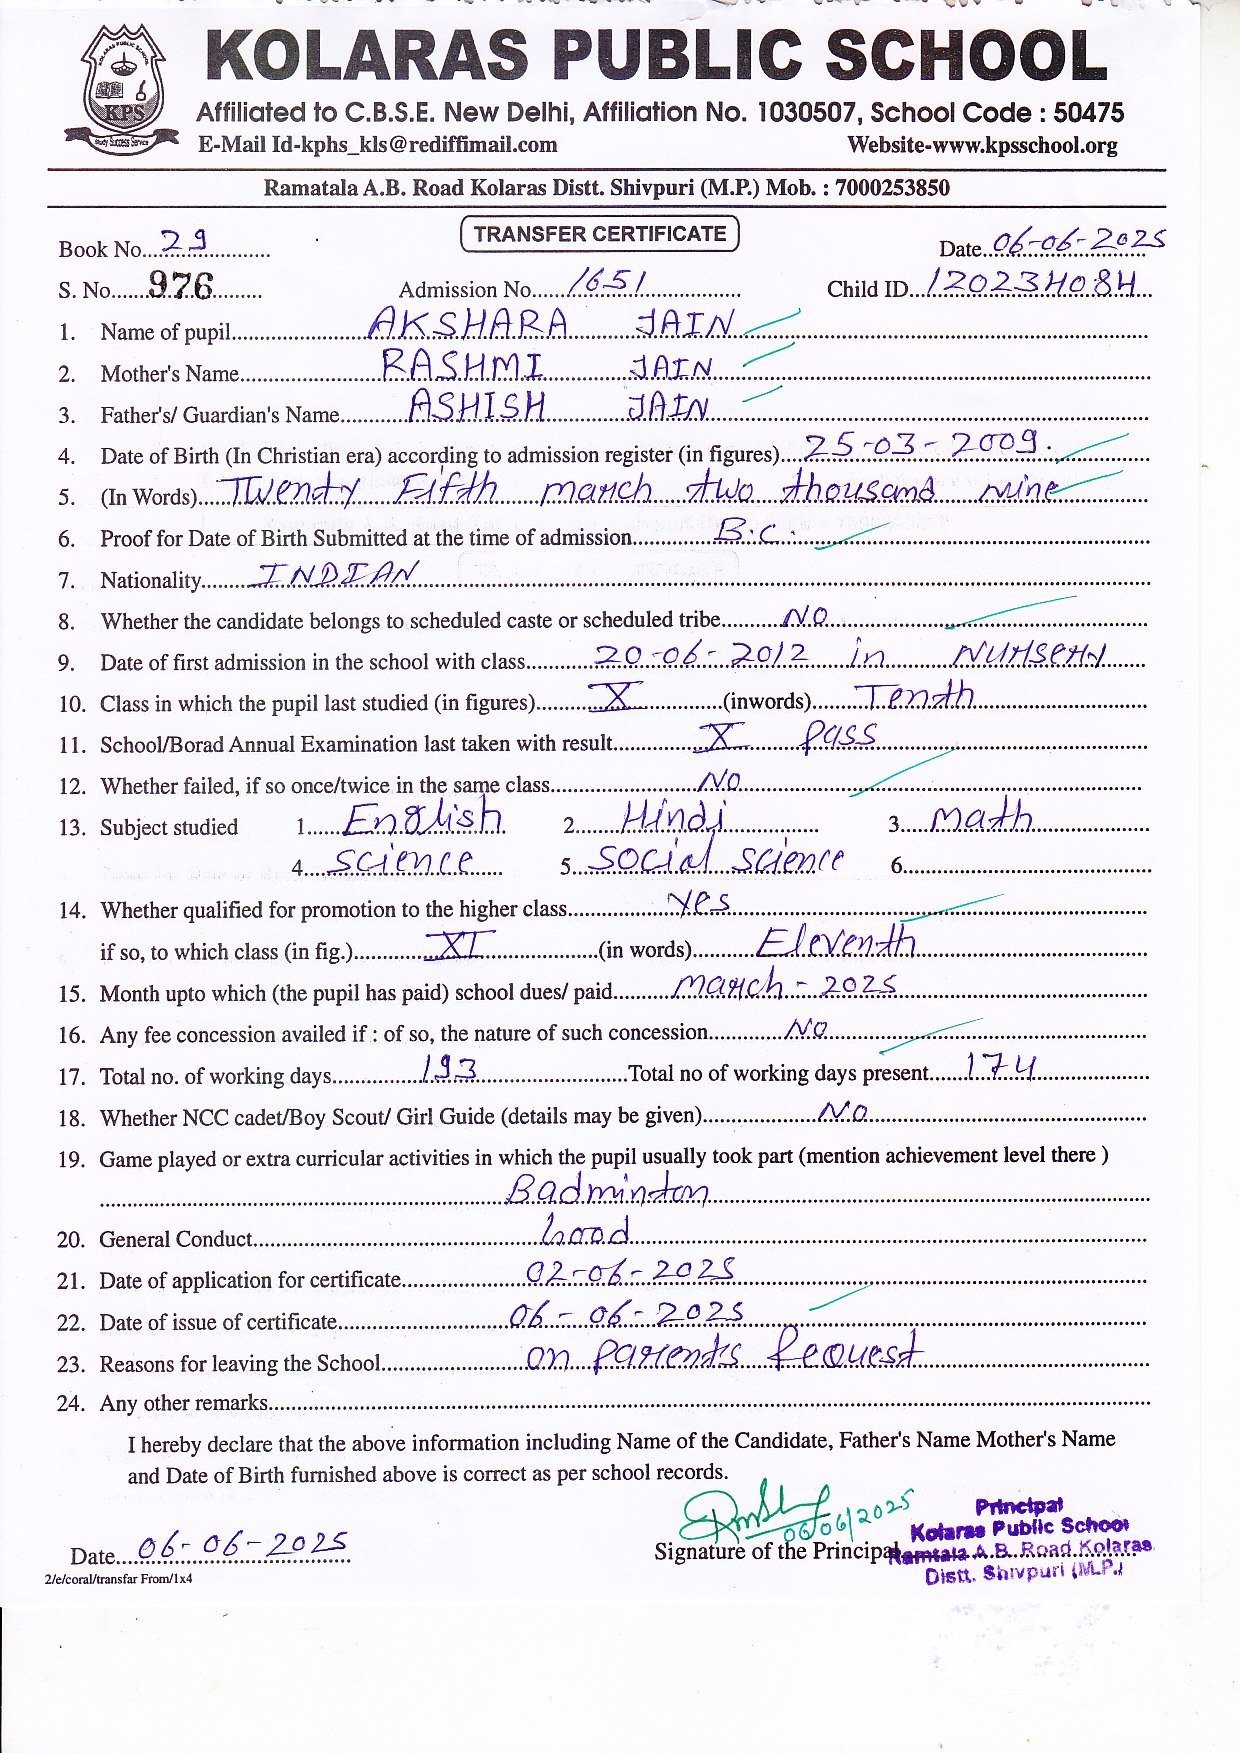 KOLARAS PUBLIC SCHOOL
Affiliated to C.B.S.E. New Delhi, Affiliation No. 1030507, School Code : 50475
E-Mail Id-kphs_kls@rediffimail.com Website-www.kpsschool.org
KOLARAS PUBLIC SCHOOL
KPS
Study Success Service
Ramatala A.B. Road Kolaras Distt. Shivpuri (M.P.) Mob. : 7000253850
TRANSFER CERTIFICATE
Book No....29.... Date...06-06-2025
S. No....976.... Admission No....1651.... Child ID...120234084...
1. Name of pupil....AKSHARA JAIN....
2. Mother's Name....RASHMI JAIN....
3. Father's/ Guardian's Name....ASHISH JAIN....
4. Date of Birth (In Christian era) according to admission register (in figures)....25-03-2009.
5. (In Words)....Twenty Fifth march two thousand Nine
6. Proof for Date of Birth Submitted at the time of admission....B.C.....
7. Nationality....INDIAN....
8. Whether the candidate belongs to scheduled caste or scheduled tribe....NO....
9. Date of first admission in the school with class....20-06-2012 in Nursery....
10. Class in which the pupil last studied (in figures)....X....(inwords)....Tenth....
11. School/Borad Annual Examination last taken with result....X pass....
12. Whether failed, if so once/twice in the same class....NO....
13. Subject studied 1....English.... 2....Hindi.... 3....math....
4....science.... 5....social science 6....
14. Whether qualified for promotion to the higher class....yes....
if so, to which class (in fig.)....XI....(in words)....Eleventh....
15. Month upto which (the pupil has paid) school dues/ paid....march - 2025....
16. Any fee concession availed if : of so, the nature of such concession....NO....
17. Total no. of working days....193....Total no of working days present....174....
18. Whether NCC cadet/Boy Scout/ Girl Guide (details may be given)....NO....
19. Game played or extra curricular activities in which the pupil usually took part (mention achievement level there )
....Badminton....
20. General Conduct....Good....
21. Date of application for certificate....02-06-2025....
22. Date of issue of certificate....06-06-2025....
23. Reasons for leaving the School....on parents Request....
24. Any other remarks....
I hereby declare that the above information including Name of the Candidate, Father's Name Mother's Name
and Date of Birth furnished above is correct as per school records.
06/06/2025
Principal
Kolaras Public School
Date....06-06-2025 Signature of the Principal
Ramtala A.B. Road Kolaras
Distt. Shivpuri (M.P.)
2/e/coral/transfar From/1x4